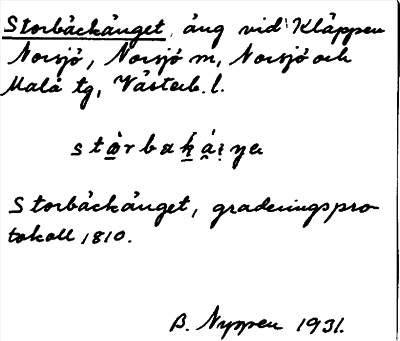 Storbäckänget, äng vid Kläppen
Norsjö, Norsjö sn, Norsjö och
Malå tg, Västerb. l.
Storbäckänget, graderingspro-
tokoll 1810.
B. Nyppen 1931.